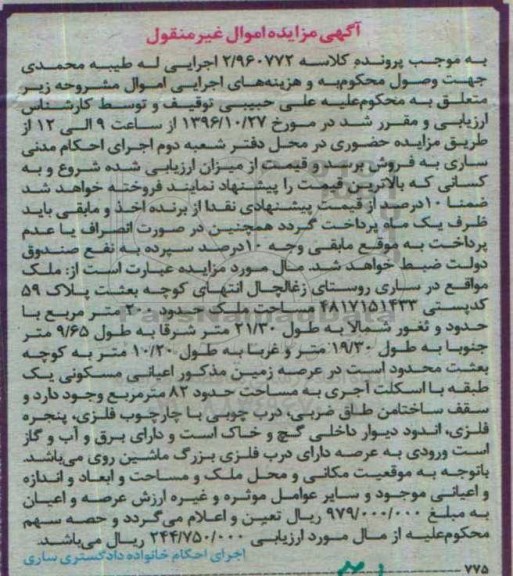 آگهی مزایده اموال غیر منقول
به موجب پرونده کلاسه ۲/۹۶۰۷۷۲ اجرایی له طیبه محمدی
جهت وصول محکوم‌به و هزینه‌های اجرایی اموال مشروحه زیر
متعلق به محکوم‌علیه علی حبیبی توقیف و توسط کارشناس
ارزیابی و مقرر شد در مورخ ۱۳۹۶/۱۰/۲۷ از ساعت ۹ الی ۱۲ از
طریق مزایده حضوری در محل دفتر شعبه دوم اجرای احکام مدنی
ساری به فروش برسد و قیمت از میزان ارزیابی شده شروع و به
کسانی که بالاترین قیمت را پیشنهاد نمایند فروخته خواهد شد
ضمنا ۱۰درصد از قیمت پیشنهادی نقدا از برنده اخذ و مابقی باید
ظرف یک ماه پرداخت گردد همچنین در صورت انصراف یا عدم
پرداخت به موقع مابقی وجه ۱۰درصد سپرده به نفع صندوق
دولت ضبط خواهد شد. مال مورد مزایده عبارت است از: ملک
مواقع در ساری روستای زغالچال انتهای کوچه بعثت پلاک ۵۹
کدپستی ۴۸۱۷۱۵۱۴۳۳ مساحت ملک حدود ۲۰۰ متر مربع با
حدود و ثغور شمالا به طول ۲۱/۳۰ متر شرقا به طول ۹/۶۵ متر
جنوبا به طول ۱۹/۳۰ متر و غربا به طول ۱۰/۲۰ متر به کوچه
بعثت محدود است در عرصه زمین مذکور اعیانی مسکونی یک
طبقه با اسکلت آجری به مساحت حدود ۸۲ مترمربع وجود دارد و
سقف ساختامن طاق ضربی، درب چوبی با چارچوب فلزی، پنجره
فلزی، اندود دیوار داخلی گچ و خاک است و دارای برق و آب و گاز
است ورودی به عرصه دارای درب فلزی بزرگ ماشین روی می‌باشد.
باتوجه به موقعیت مکانی و محل ملک و مساحت و ابعاد و اندازه
و اعیانی موجود و سایر عوامل موثره و غیره ارزش عرصه و اعیان
به مبلغ ۹۷۹/۰۰۰/۰۰۰ ریال تعین و اعلام می‌گردد و حصه سهم
محکوم‌علیه از مال مورد ارزیابی ۲۴۴/۷۵۰/۰۰۰ ریال می‌باشد.
اجرای احکام خانواده دادگستری ساری
۷۷۵